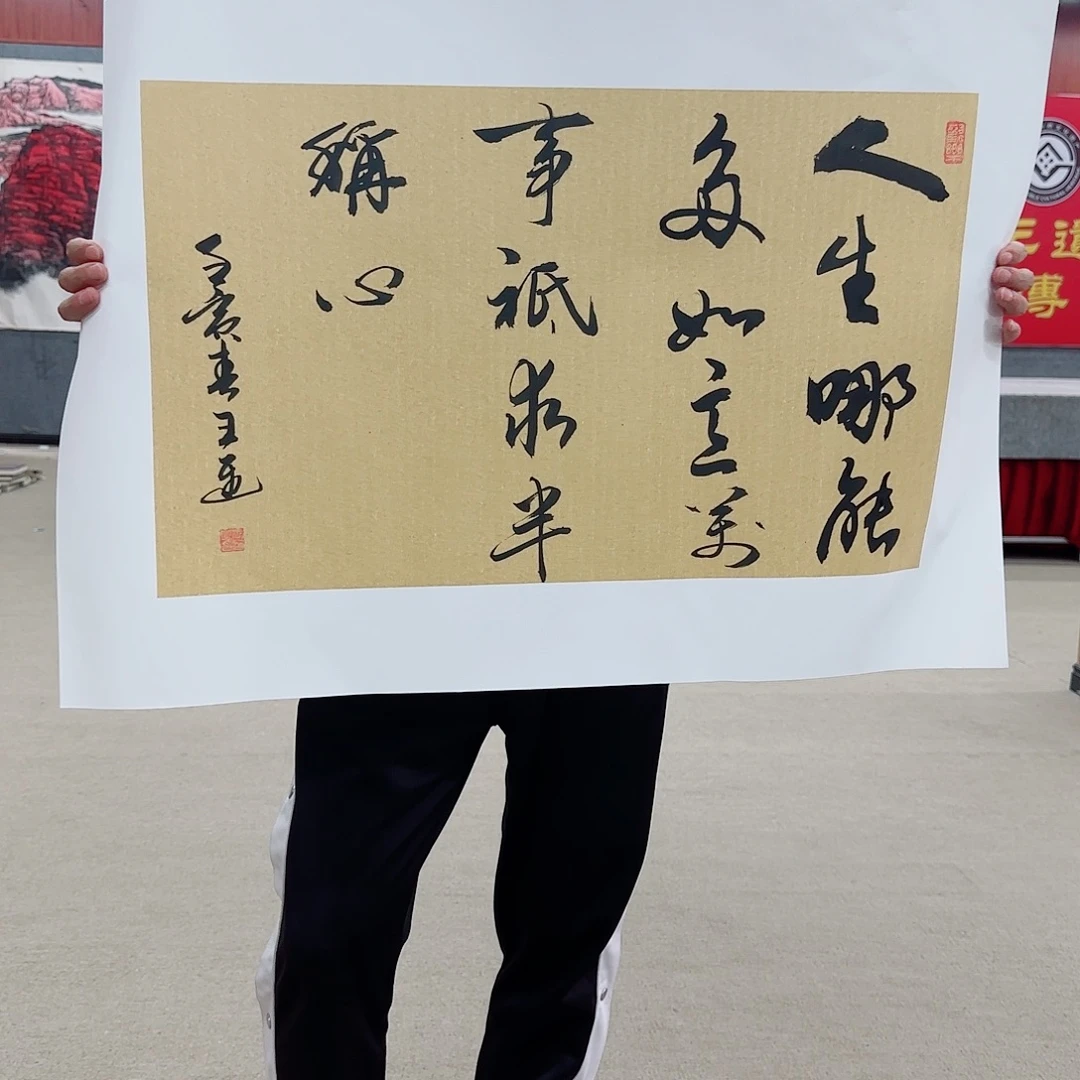 人生哪能
多如意萬
事祗求半
稱心
壬寅春王
遺
傳